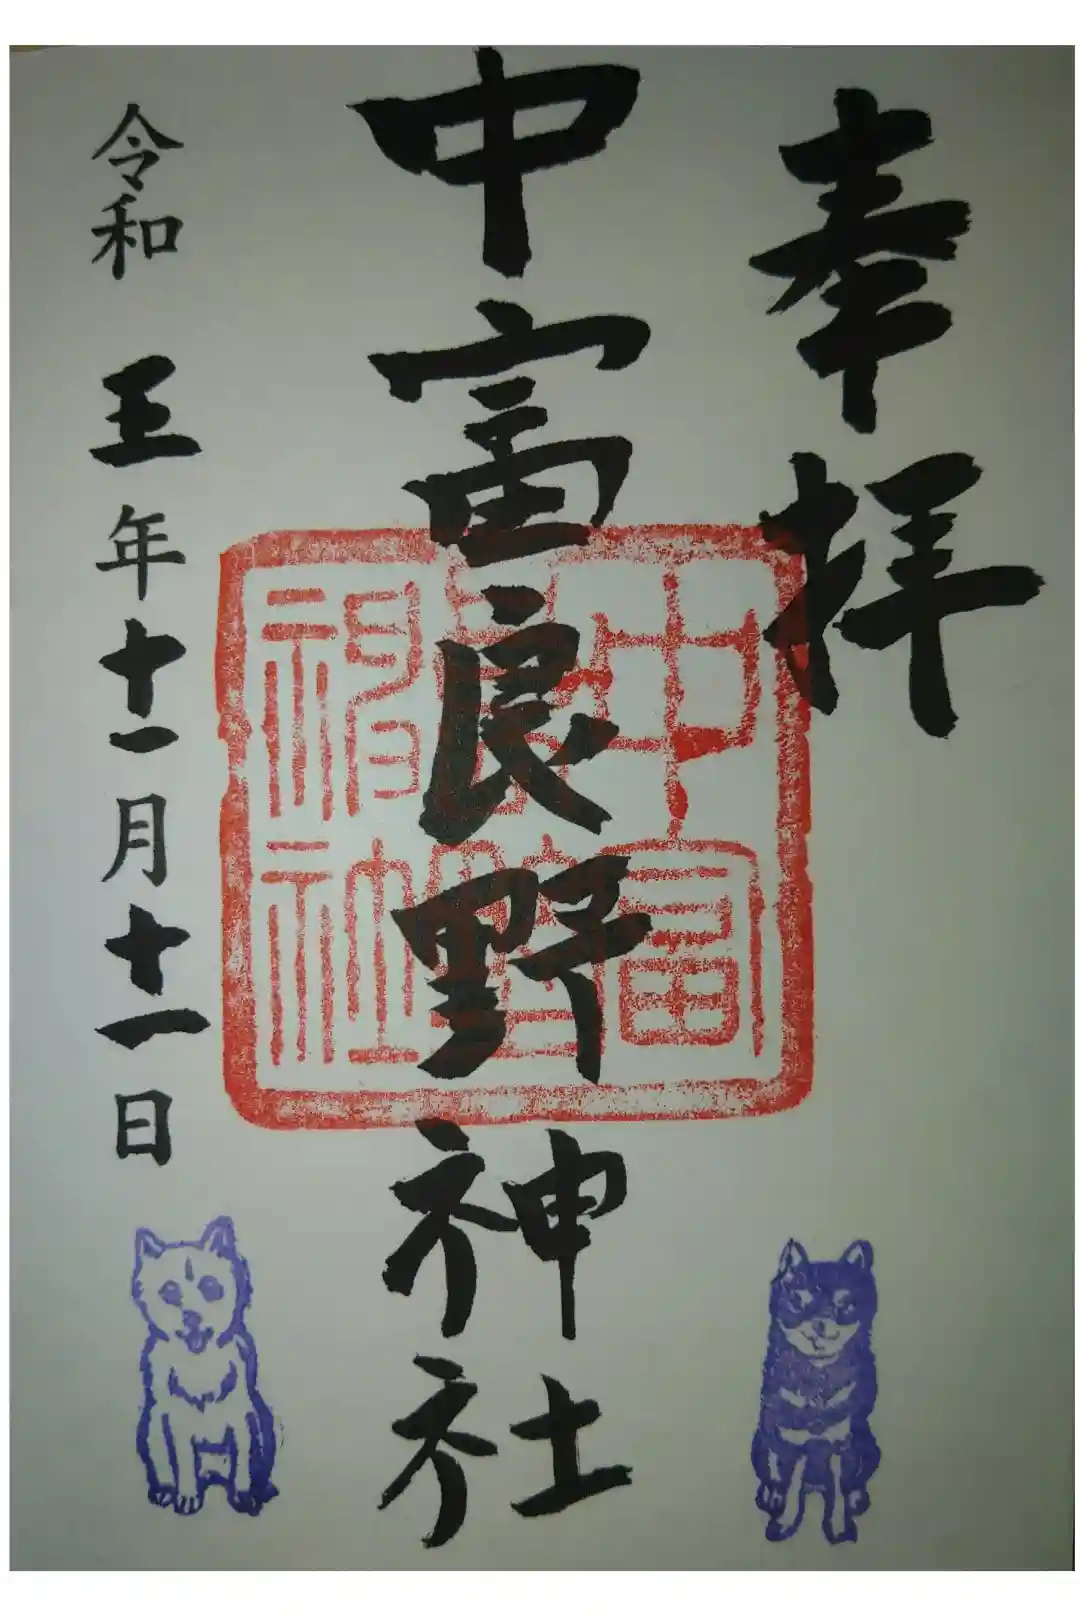 奉拝
中富良野神社
中富
良野
神社
令和 五年十一月十一日